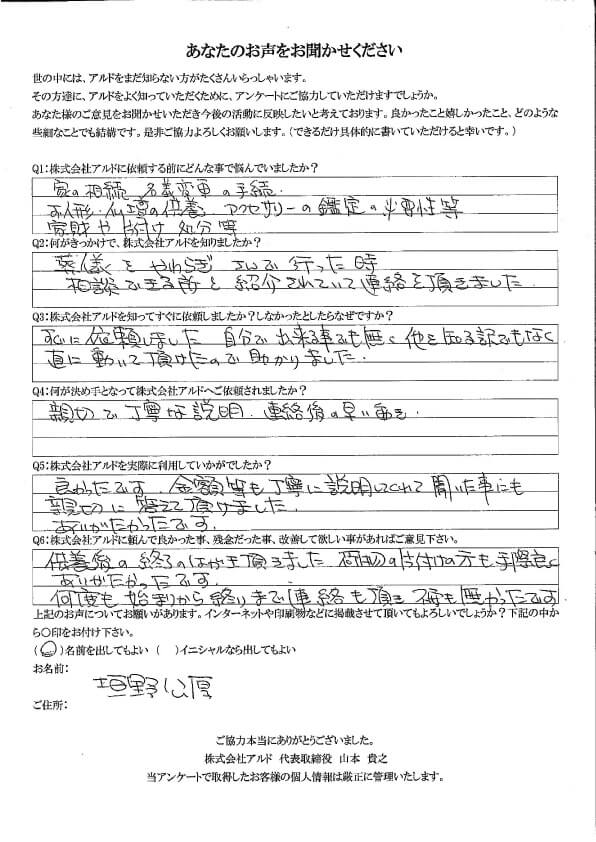 あなたのお声をお聞かせください
世の中には、アルドをまだ知らない方がたくさんいらっしゃいます。
その方達に、アルドをよく知っていただくために、アンケートにご協力していただけますでしょうか。
あなた様のご意見をお聞かせいただき今後の活動に反映したいと考えております。良かったこと嬉しかったこと、どのような
些細なことでも結構です。是非ご協力よろしくお願いします。（できるだけ具体的に書いていただけると幸いです。）
Q1：株式会社アルドに依頼する前にどんな事で悩んでいましたか？
家の相続 名義変更の手続.
お人形・仏壇の供養 アクセサリーの鑑定の必要性等
家財や片付け 処分等
Q2：何がきっかけで、株式会社アルドを知りましたか？
葬儀をやわらぎさんで行った時
相談できる所と紹介されていて連絡を頂きました.
Q3：株式会社アルドを知ってすぐに依頼しましたか？しなかったとしたらなぜですか？
すぐに依頼しました 自分で出来る事でも無く 他を知る訳でもなく
直に動いて頂けたので助かりました.
Q4：何が決め手となって株式会社アルドへご依頼されましたか？
親切で丁寧な説明. 連絡後の早い動き.
Q5：株式会社アルドを実際に利用していかがでしたか？
良かったです 金額等も丁寧に説明してくれて聞いた事にも
親切に答えて頂けました.
ありがたかったです.
Q6：株式会社アルドに頼んで良かった事、残念だった事、改善して欲しい事があればご意見下さい。
供養後の終了のはがきも頂きました 荷物の片付けの方も手際良く
ありがたかったです.
何度も始まりから終りまで連絡も頂き 不安も無かったです
上記のお声についてお願いがあります。インターネットや印刷物などに掲載させて頂いてもよろしいでしょうか？下記の中か
ら〇印をお付け下さい。
（〇）名前を出してもよい （ ）イニシャルなら出してもよい
お名前：
垣野公厚
ご住所：
ご協力本当にありがとうございました。
株式会社アルド 代表取締役 山本 貴之
当アンケートで取得したお客様の個人情報は厳正に管理いたします。